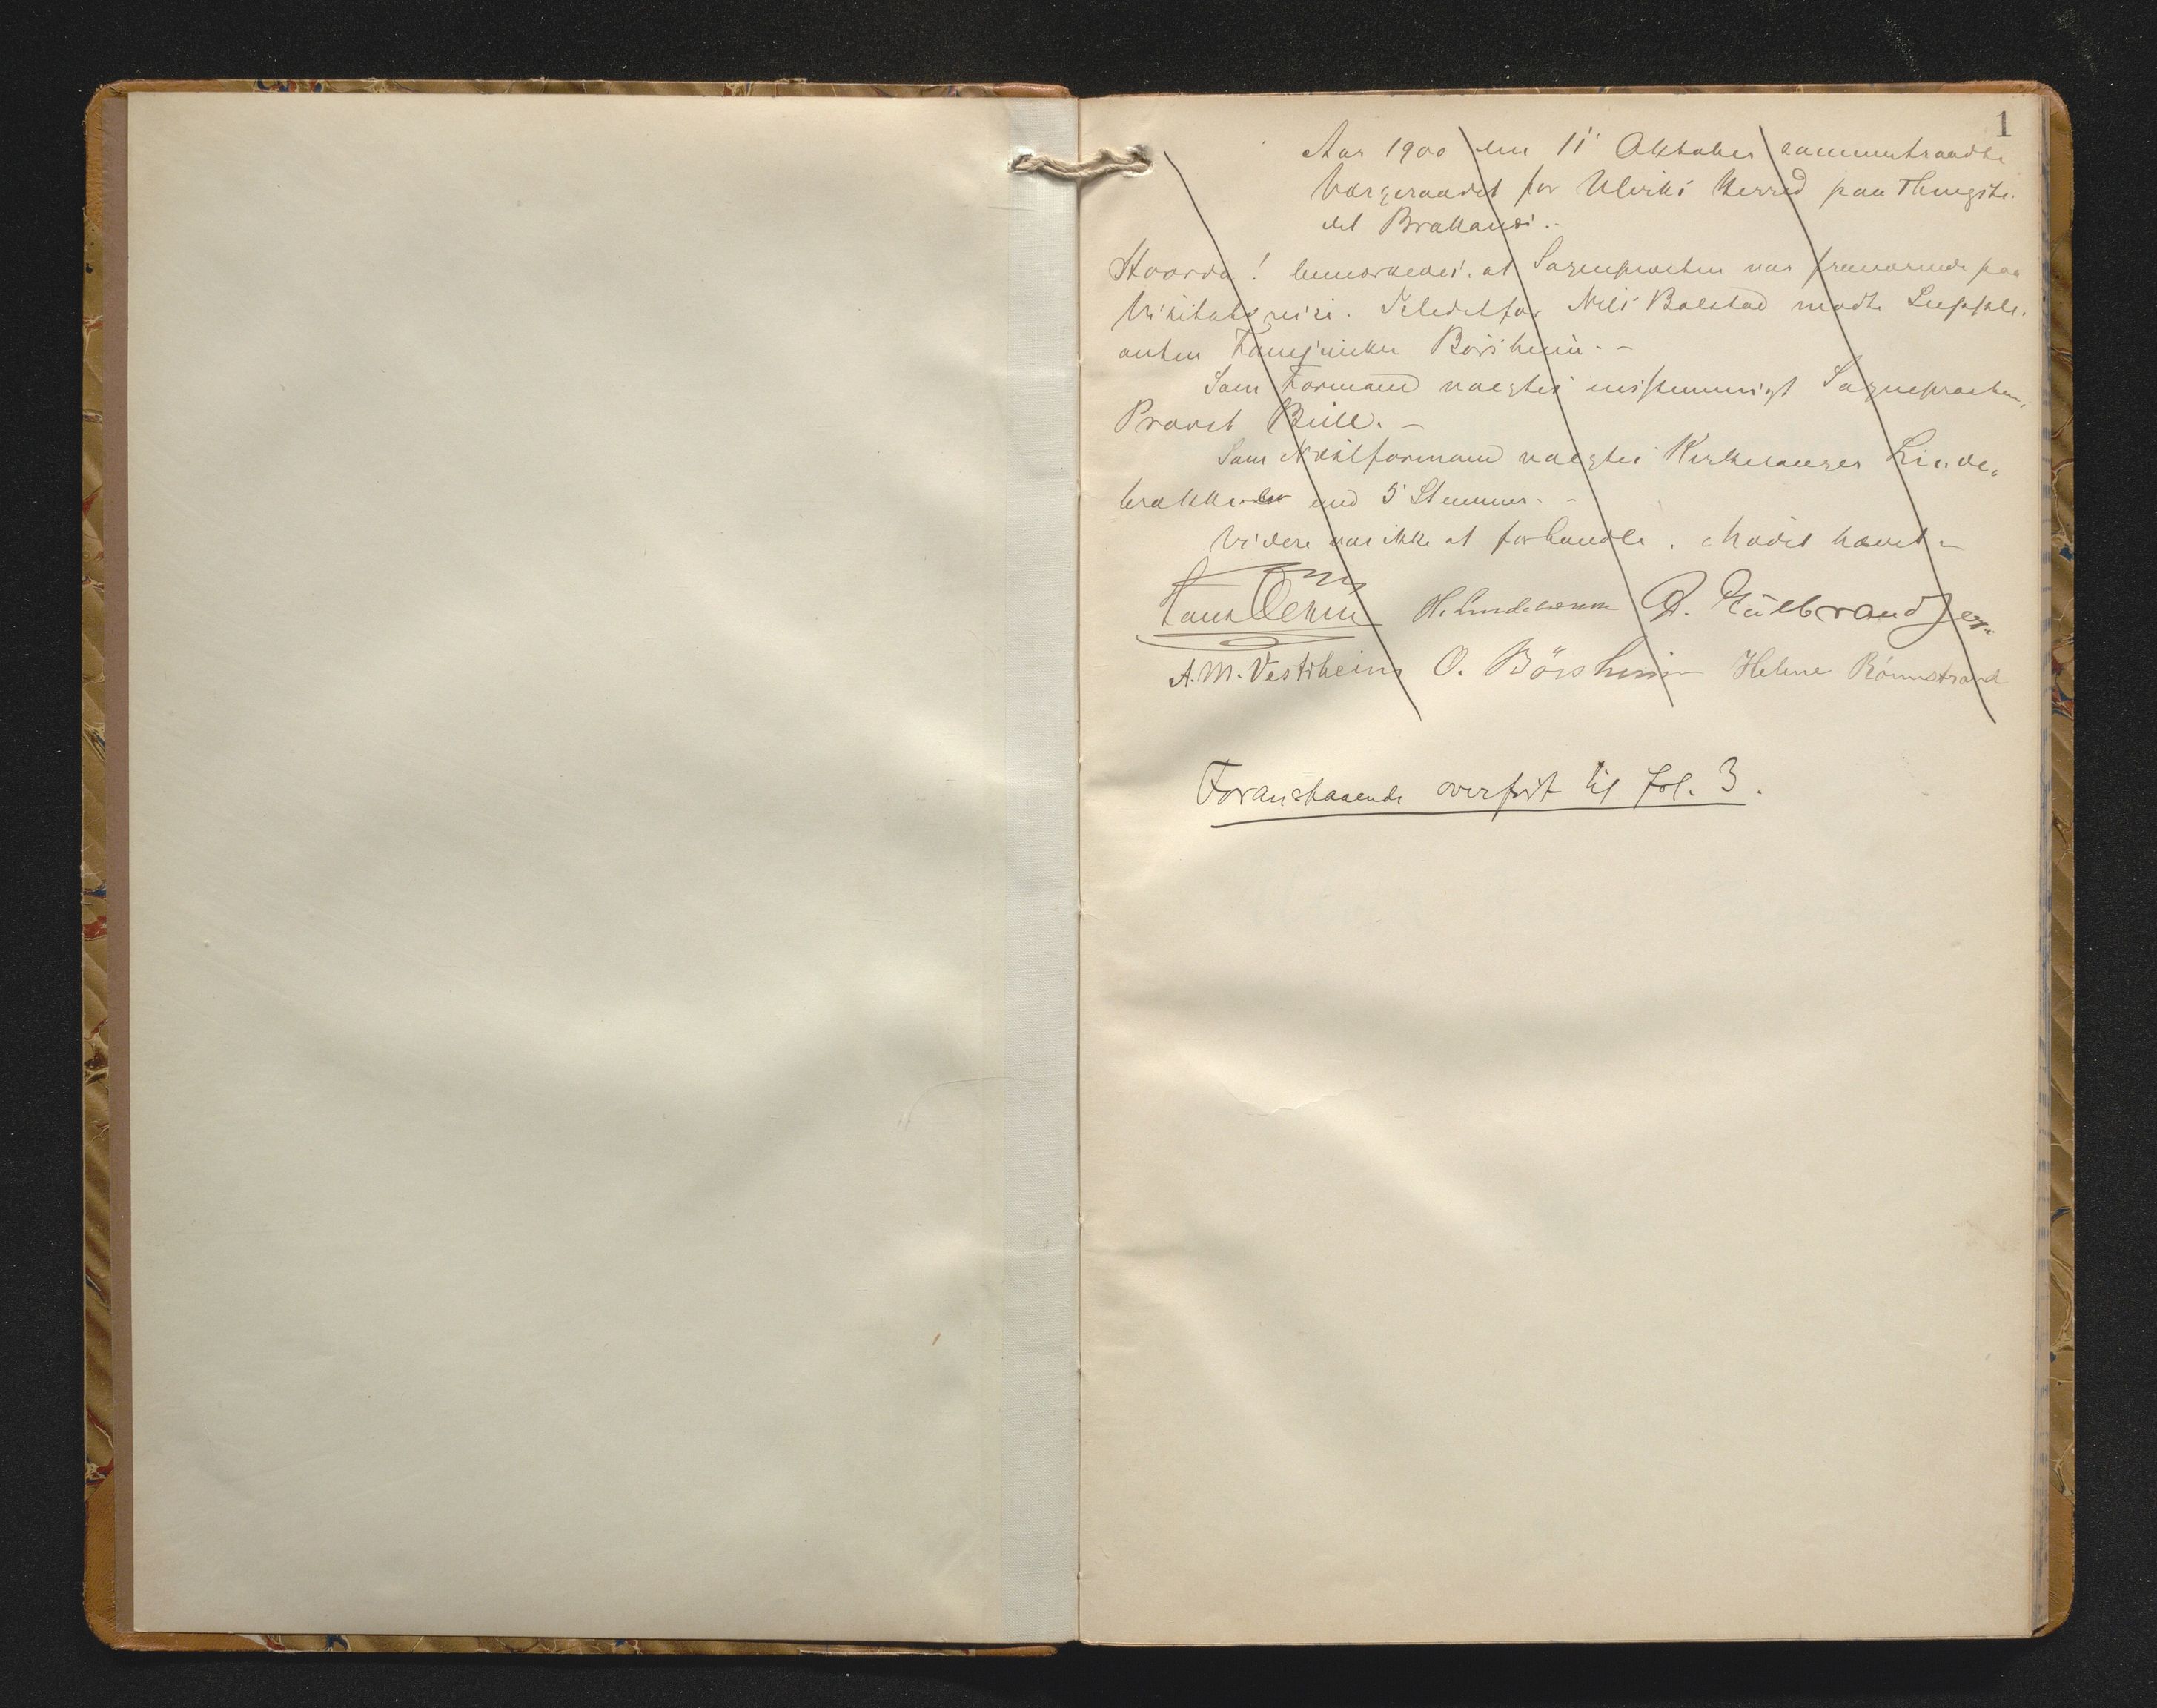 1
Aar 1900 den 11' Oktober sammentraadte
Værgeraadet for Ulviks Herred paa Thingste-
det Brakanes.-
Hvorda! bemærkedes, at Sognepræsten var fraværende paa
Visitatsreise. Istedetfor Nils Bolstad mødte Supple-
anten Børsheim. -
Som Formand valgtes enstemmigt Sognepræsten,
Provst Bull. -
Som Næstformand valgtes Kirkesanger Linde-
brække med 5 Stemmer. -
Videre var ikke at forhandle. Mødet hævet -
Hans H. Lindebrække G. Gulbrandsen.
A. M. Vestrheim O. Børsheim Helene Rønnestrand
Foranstaaende overført til fol. 3.